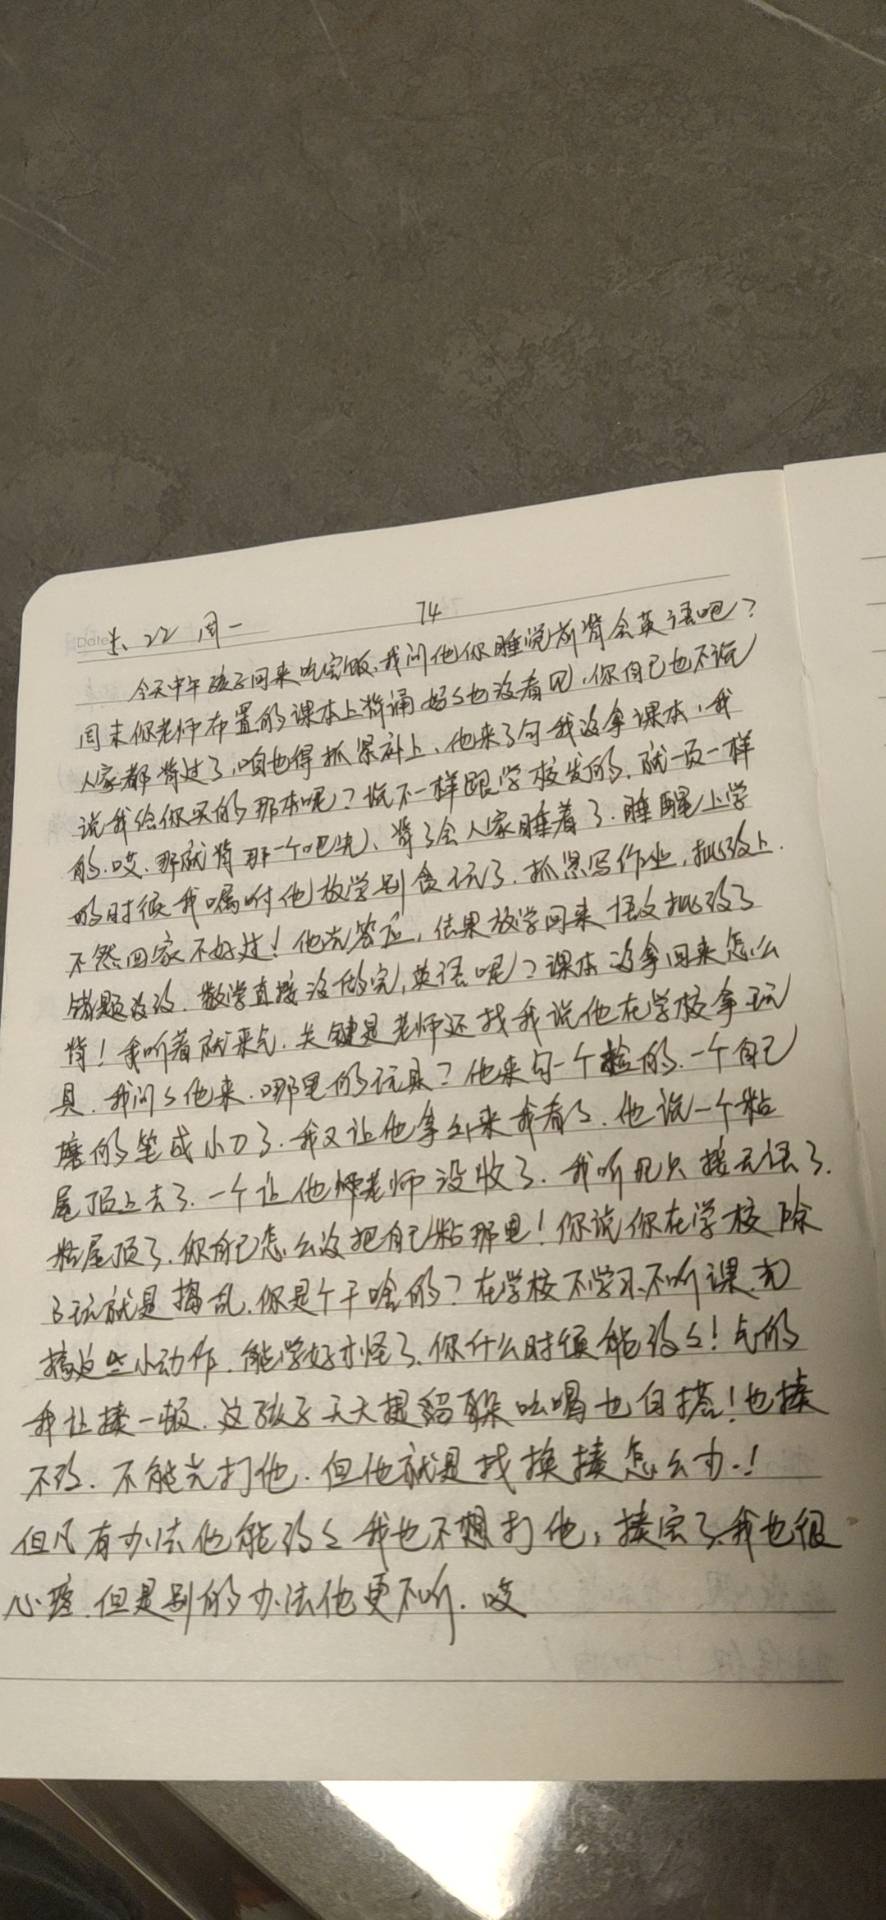 Date 5、22 周一 74
今天中午孩子回来吃完饭、我问他你睡觉前背会英语吧？
周末你老师布置的课本上背诵 好多也没看见、你自己也不说
人家都背过了，咱也得抓紧补上、他来了句我没拿课本，我
说我给你买的那本呢？说不一样跟学校发的、就一页一样
的、哎、那就背那一个吧先、背了会人家睡着了、睡醒上学
的时候我嘱咐他放学别贪玩了、抓紧写作业，批改上、
不然回家不好过！他光答应，结果放学回来语文批改了
错题没改、数学直接没做完，英语呢？课本没拿回来怎么
背！我听着就来气、关键是老师还找我说他在学校拿玩
具、我问了他来、哪里的玩具？他来句一个捡的、一个自己
磨的笔成小刀了、我又让他拿出来我看了、他说一个粘
屋顶上去了、一个让他师老师没收了、我听见只接无语了、
粘屋顶了、你自己怎么没把自己粘那里！你说你在学校除
了玩就是捣乱、你是个干啥的？在学校不学习、不听课、光
搞这些小动作、能学好才怪了、你什么时候能改了！气的
我让揍一顿、这孩子天天提 吆喝也白搭！也揍
不改、不能光打他、但他就是找换揍怎么办、！
但凡有办法他能改了我也不想打他，揍完了、我也很
心疼、但是别的办法他更不听、哎